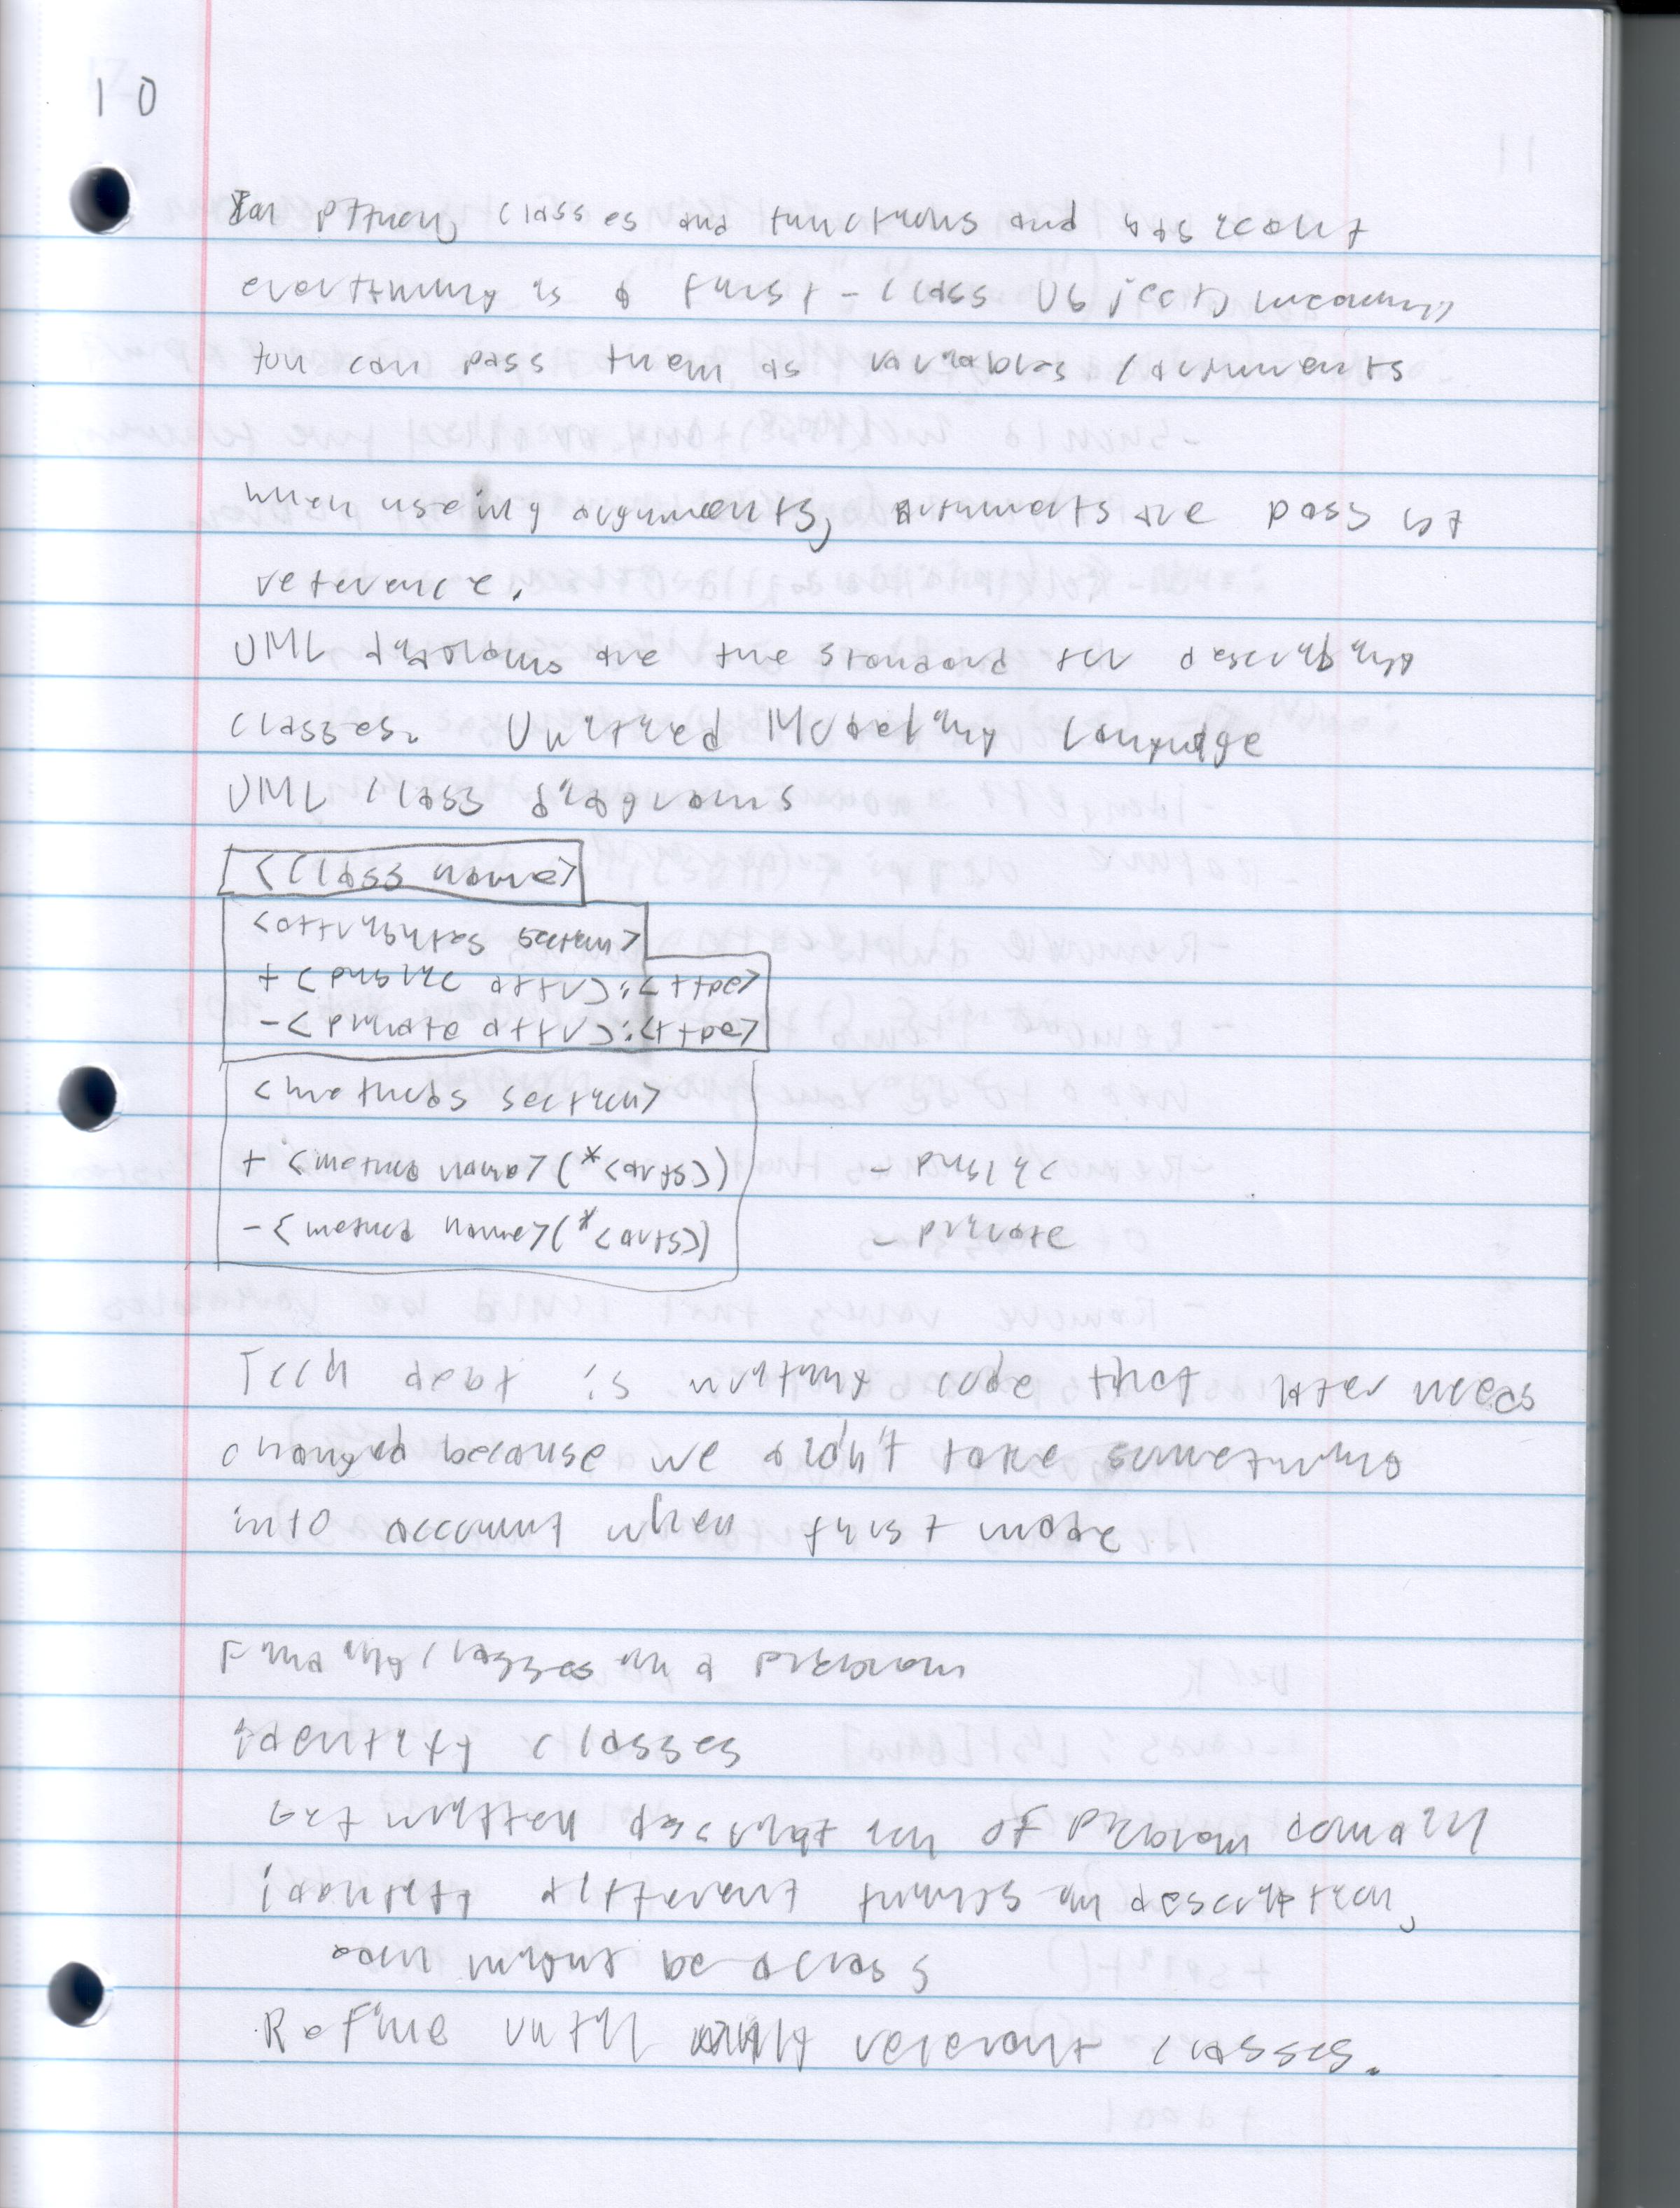 10
In Python, classes and functions and basically
everything is a first-class object, meaning
you can pass them as variables/arguments
when using arguments, arguments are pass by
reference.
UML diagrams are the standard for describing
classes. Unified Modeling Language
UML class diagrams
<class name>
<attributes section>
+ <public attr>:<type>
- <private attr>:<type>
<methods section>
+ <method name>(*<args>) - public
- <method name>(*<args>) - private
Tech debt is writing code that later needs
changed because we didn't take something
into account when first made
Finding classes in a problem
identify classes
Get written description of problem domain
identify different things in description,
each might be a class
Refine until only relevant classes.